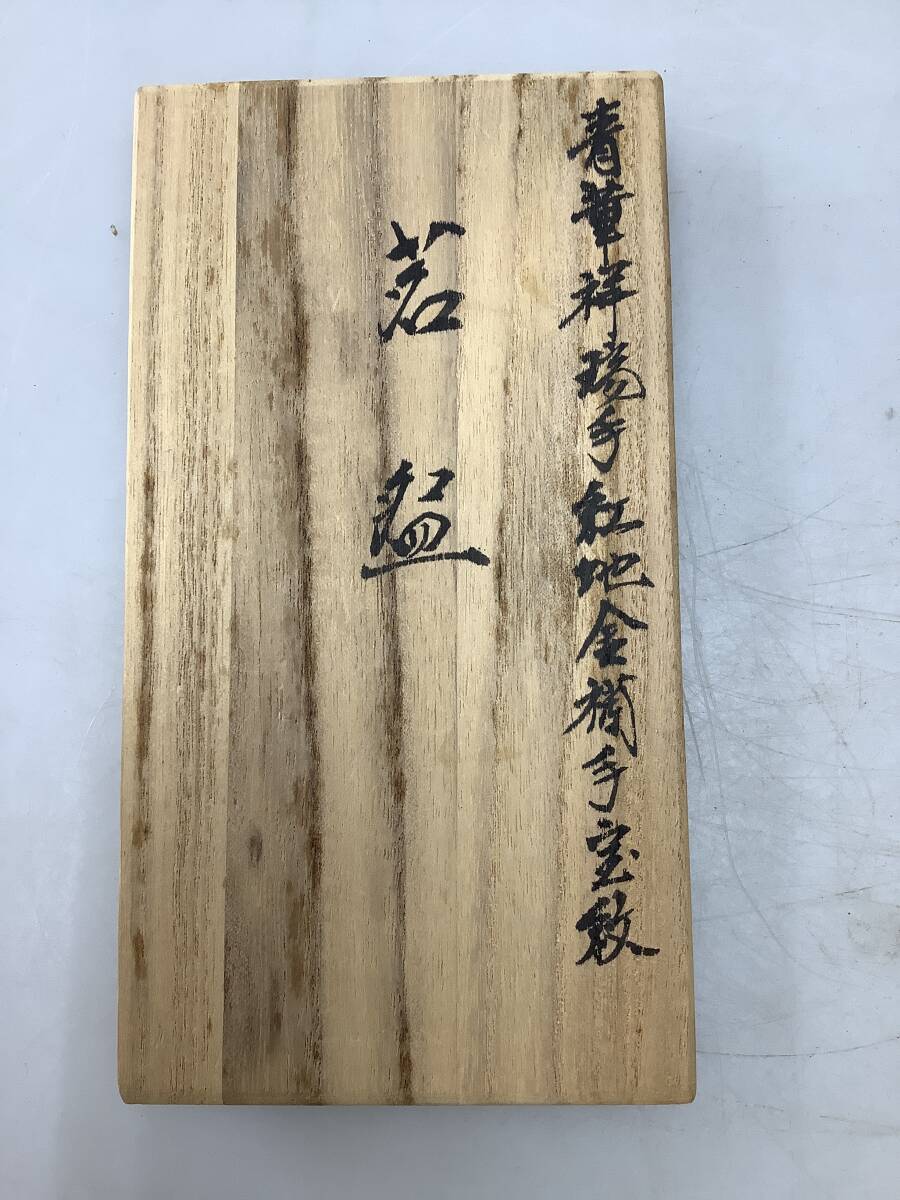 青華祥瑞手紅地金襴手宝散
茗盌